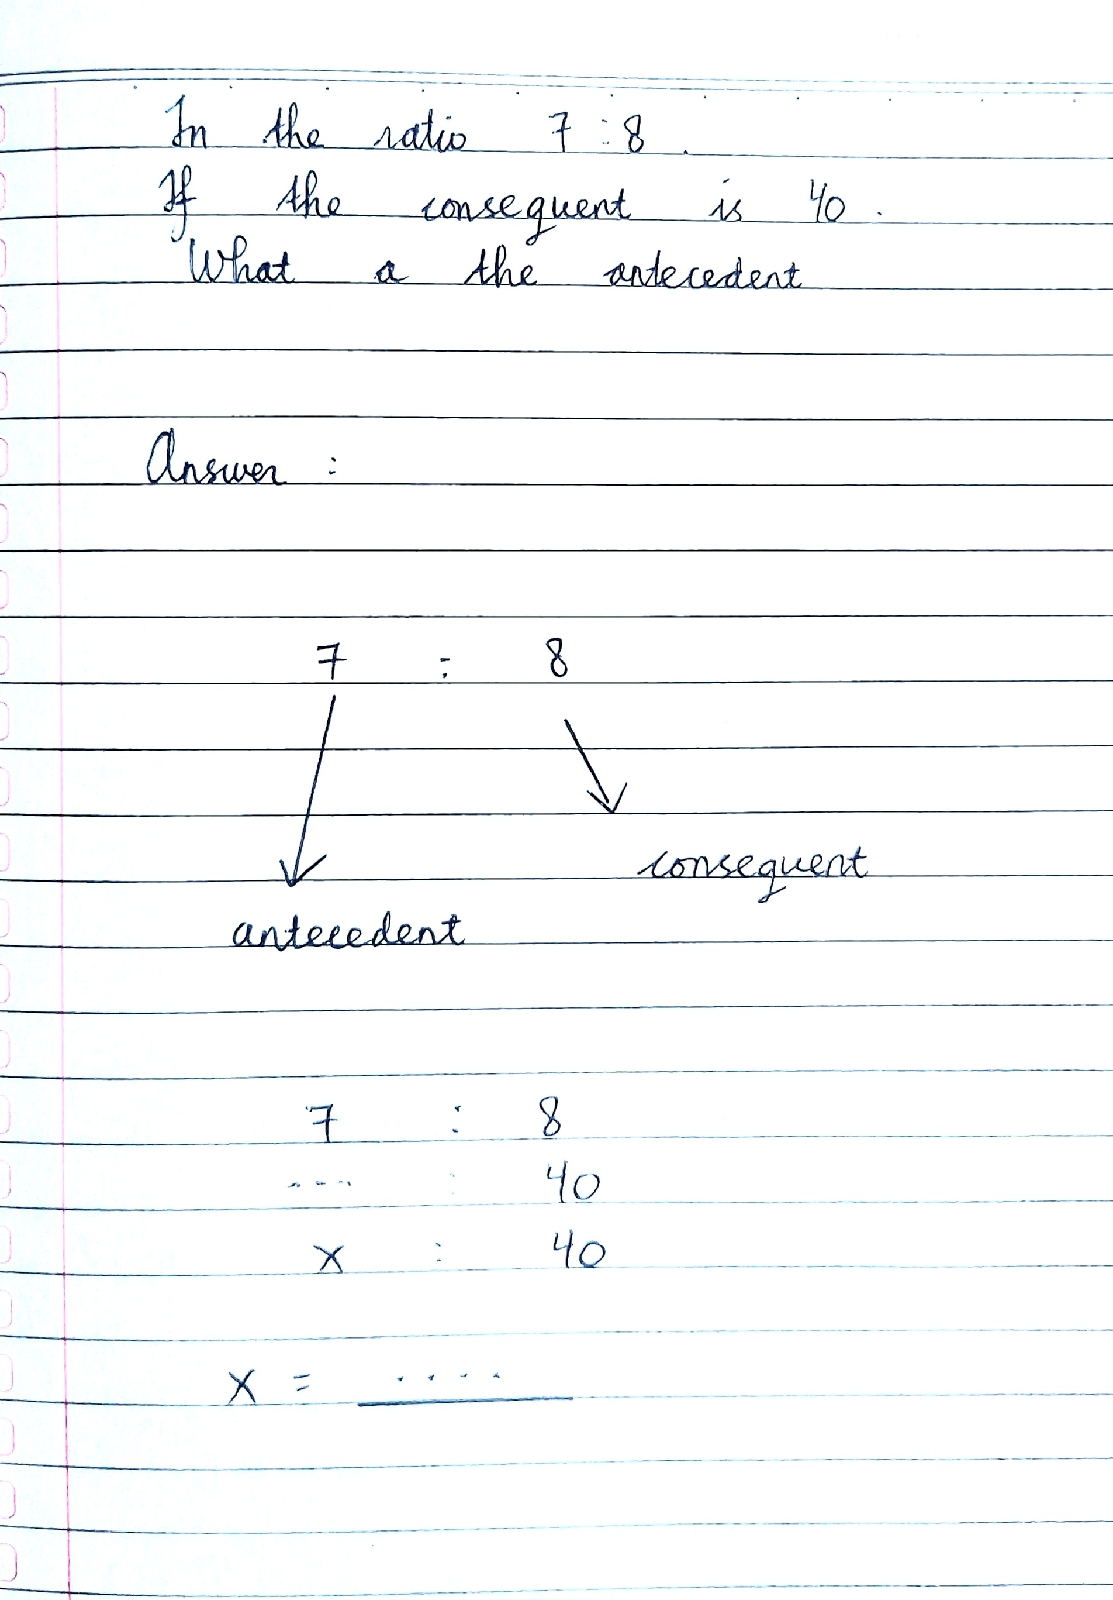 In the ratio 7 : 8.
If the consequent is 40.
What a the antecedent
Answer :
7 : 8
consequent
antecedent
7 : 8
... : 40
x : 40
x = ....